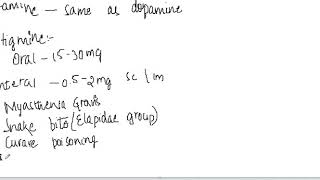 amine – same as dopamine
tigmine:-
Oral – 15-30mg
nteral – 0.5-2mg sc / im
Myasthenia Gravis
Snake bite (Elapidae group)
Curare poisoning